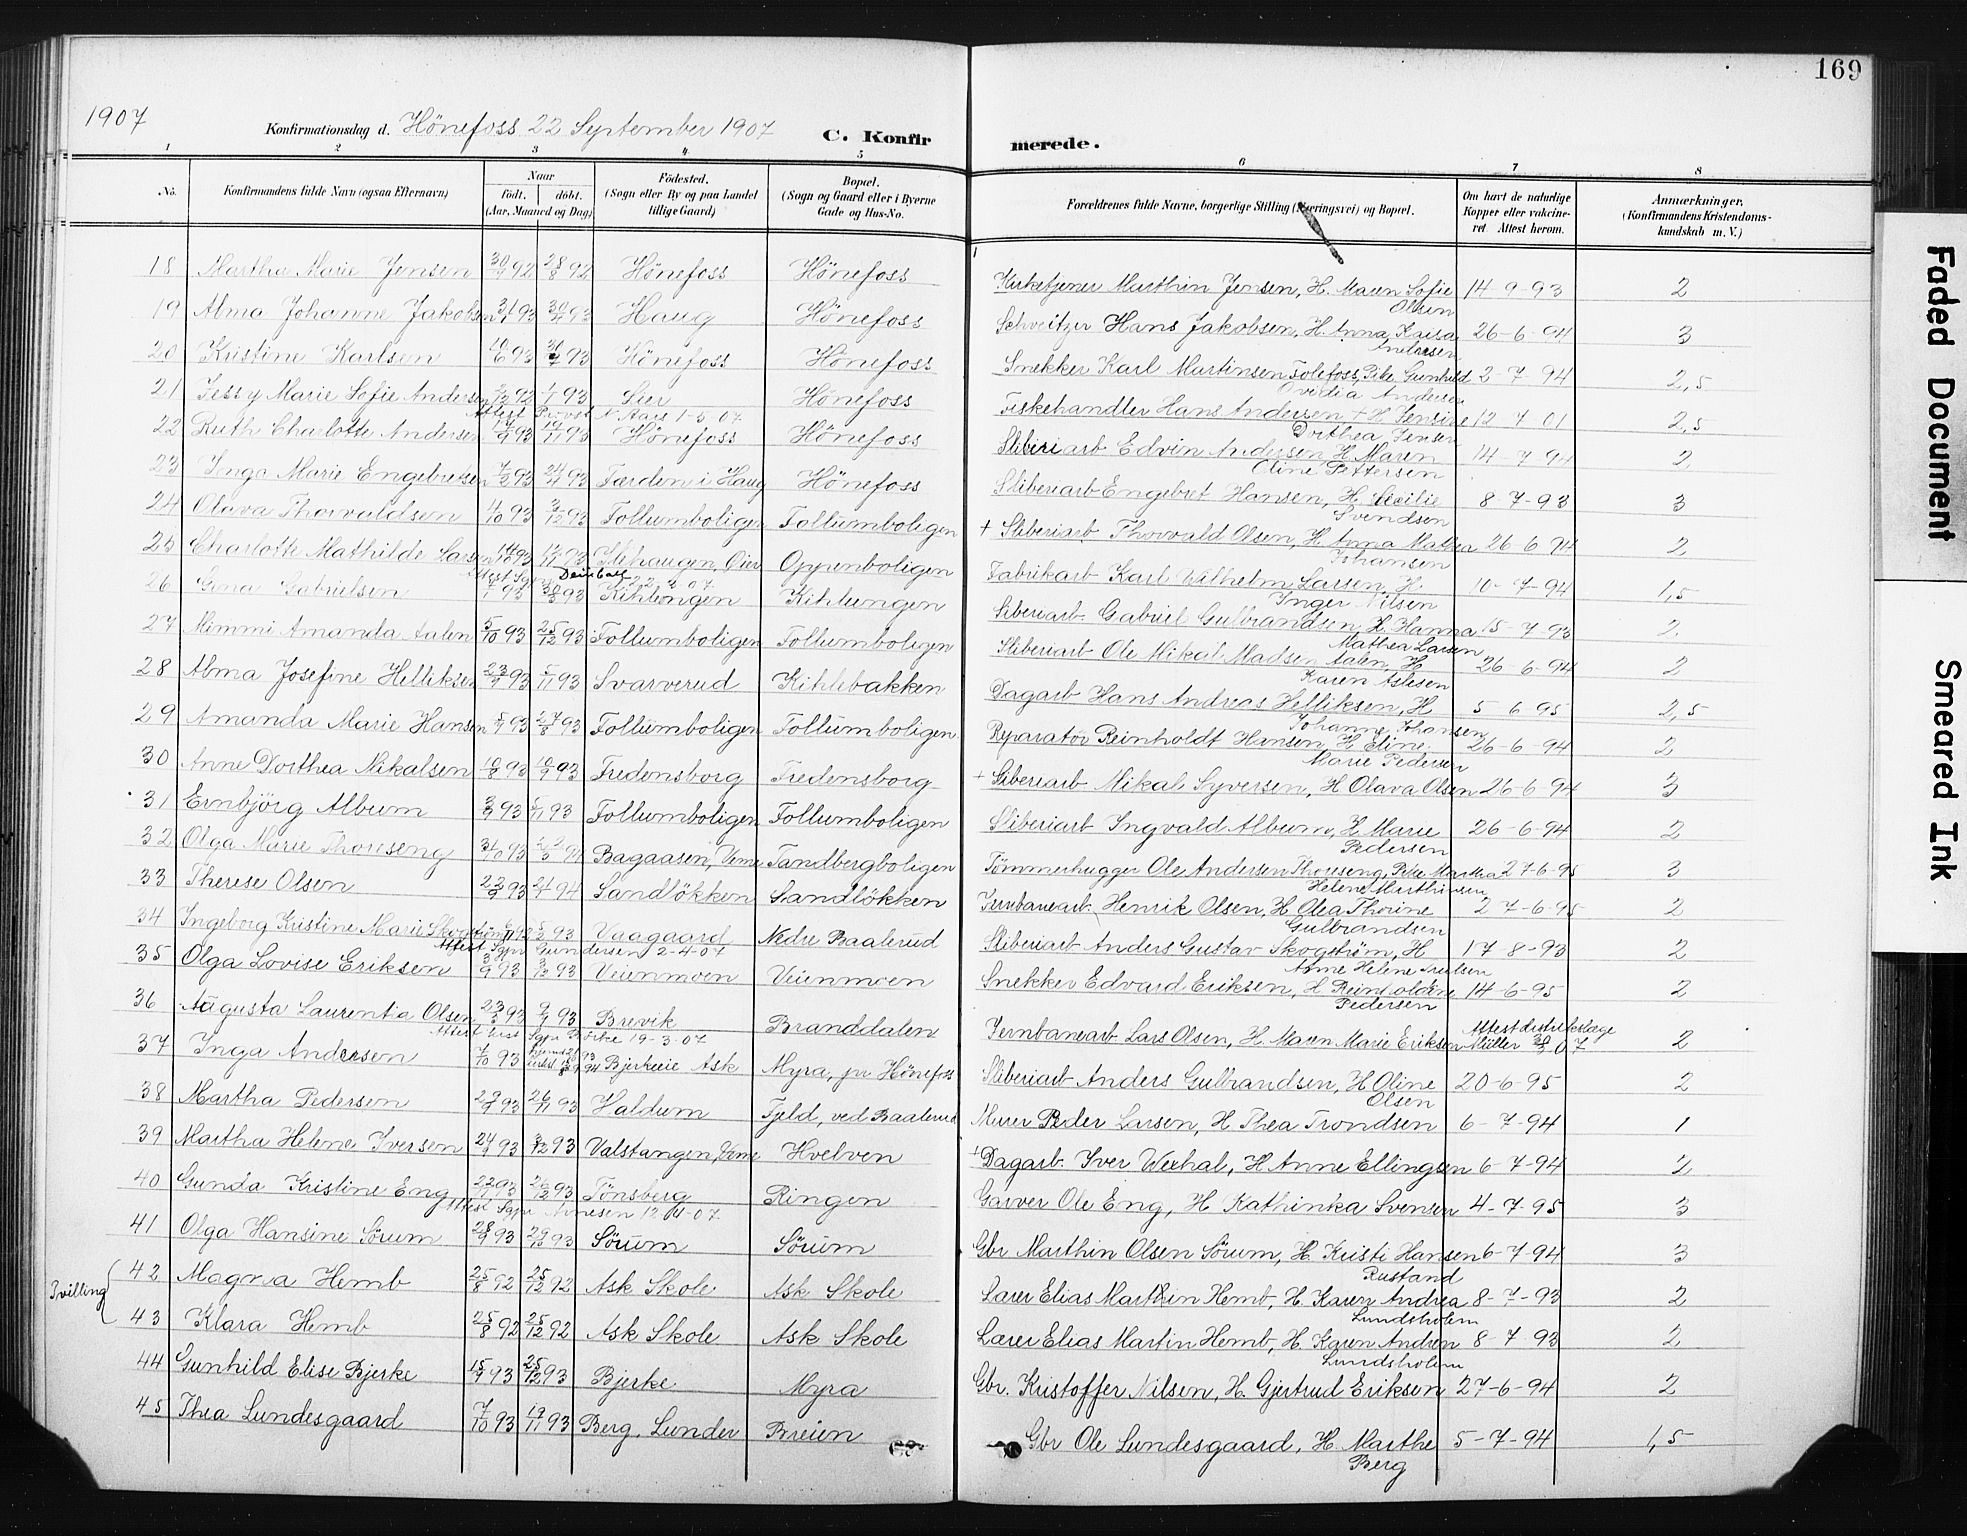 169
1907 Konfirmationsdag d. Hönefoss 22 September 1907 C. Konfirmerede.
1 2 3 4 5 6 7 8
No. Konfirmandens fulde Navn (ogsaa Efternavn) Naar födt. döbt. (Aar, Maaned og Dag) Födested. (Sogn eller By og paa Landet tillige Gaard) Bopæl. (Sogn og Gaard eller i Byerne Gade og Hus-No. Forældrenes fulde Navne, borgerlige Stilling (Næringsvei) og Bopæl. Om havt de naturlige Kopper eller vakcineret Attest herom. Anmærkninger. (Konfirmandens Kristendomskundskab m. V.)
18 Martha Marie Jensen 92 28/8 92 Hönefoss Hönefoss Kirketjener Marthin Jensen, H. Maren Sofie Olsen 14-9-93 2
19 Alma Johanne Jakobsen 93 93 Haug Hönefoss Schveitzer Hans Jakobsen, H. Anna Andersen 26-6-94 3
20 Kristine Karlsen 93 93 Hönefoss Hönefoss Snekker Karl Martinsen Pike Gunhild Ovidia Andersen 2-7-94 2,5
21 Jessy Marie Sofie Andersen 92 93 Lier Hönefoss Fiskehandler Hans Andersen + H Jensine Dorthea Jensen 12-7-01 2,5
Attest Provst Aars 1-5-07
22 Ruth Charlotte Andersen 93 19/11 93 Hönefoss Hönefoss Sliberiarb Edvin Andersen, H. Maren Oline Pettersen 14-7-94 2
23 Inga Marie Engebretsen 93 93 Færden i Haug Hönefoss Sliberiarb Engebret Hansen, H. Cecilie Svendsen 8-7-93 3
24 Olava Thorvaldsen 4/10 93 93 Follumboligen Follumboligen + Sliberiarb Thorvald Olsen, H Anna Mathea Johansen 26-6-94 2
25 Charlotte Mathilde Larsen 93 93 Oier Oppenboligen Fabrikarb Karl Wilhelm Larsen, H. Inger Nilsen 10-7-94 1,5
26 Gina Gabrielsen 93 93 Kihlengen Kihlengen Sliberiarb. Gabriel Gulbrandsen, H. Hanna Mathea Larsen 15-7-93 2
27 Mimmi Amanda Aalen 5/10 93 25/12 93 Follumboligen Follumboligen Sliberiarb Ole Mikal Madsen Aalen, H Karen Aslesen 26-6-94 2
28 Alma Josefine Helliksen 93 5/11 93 Svarverud Kihlebakken Dagarb Hans Andreas Helliksen, H Johanne Johansen 5-6-95 2,5
29 Amanda Marie Hansen 93 27/8 93 Follumboligen Follumboligen Reparatør Reinholdt Hansen, H. Eline Marie Pedersen 26-6-94 2
30 Anne Dorthea Nikalsen 10/8 93 10/9 93 Fredensborg Fredensborg + Sliberiarb Nikal Syversen, H Olava Olsen 26-6-94 3
31 Ernbjörg Album 93 5/11 93 Follumboligen Follumboligen Sliberiarb Ingvald Album, H Marie Pedersen 26-6-94 2
32 Olga Marie Thoreseng 31/10 93 94 Bagaasen, Veme Tandbergboligen Tömmerhugger Ole Andersen Thoreseng, Pike Martha Helene Marthinsen 27-6-95 3
33 Therese Olsen 22/9 93 94 Sandlökken Sandlökken Jernbanearb. Henrik Olsen, H. Olea Thorine Gulbrandsen 27-6-95 2
34 Ingeborg Kristine Marie Skogström 92 93 Vaagaard Nedre Baalerud Sliberiarb Anders Gustav Skogström, H Anne Helene 17-8-93 2
Attest Sgpr Gundersen 2-4-07
35 Olga Lovise Eriksen 93 93 Veienmoen Veienmoen Snekker Edvard Eriksen, H. Reinholdine Pedersen 14-6-95 2
36 Augusta Laurentia Olsen 93 93 Brevik Branddalen Jernbanearb Lars Olsen, H. Maren Marie Eriksen Attest distriktslæge Müller 07 2
19-3-07
37 Inga Andersen 7/10 93 94 Bjerkeeie Ask Myra, pr Hönefoss Sliberiarb Anders Gulbrandsen, H Oline Olsen 20-6-95 2
38 Martha Pedersen 93 26/11 93 Haldum Fjeld, ved Baalerud Murer Peder Larsen, H. Thea Trondsen 6-7-94 1
39 Martha Helene Iversen 24/9 93 93 Valstangen, Veme Hvelven + Dagarb. Iver Wexhal, H Anne Ellingsen 6-7-94 2
40 Gunda Kristine Eng 93 26/12 93 Tönsberg Ringen Garver Ole Eng, H Kathinka Svensen 4-7-95 3
Attest Sgpr Arnesen 12-4-07
41 Olga Hansine Sörum 28/9 93 93 Sörum Sörum Gbr Marthin Olsen Sörum, H. Kristi Hansen Rustand 6-7-94 3
Tvilling
42 Magna Hemb 25/8 92 25/12 92 Ask Skole Ask Skole Lærer Elias Marthin Hemb, H. Karen Andrea Lundsholem 8-7-93 2
43 Klara Hemb 25/8 92 25/12 92 Ask Skole Ask Skole Lærer Elias Martin Hemb, H. Karen Andrea Lundsholem 8-7-93 2
44 Gunhild Elise Bjerke 15/9 93 25/12 93 Bjerke Myra Gbr. Kristoffer Nilsen, H. Gjertrud Eriksen 27-6-94 2
45 Thea Lundesgaard 7/10 93 19/11 93 Berg, Lunder Breien Gbr Ole Lundesgaard, H. Marthe Berg 5-7-94 1,5
Faded Document
Smeared Ink